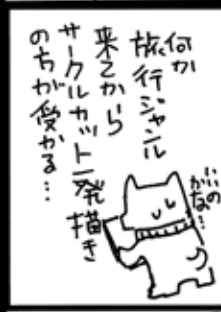 何か
旅行ジャンル
来てから
サークルカット一発描き
のちが受かる…
いいの
かな…